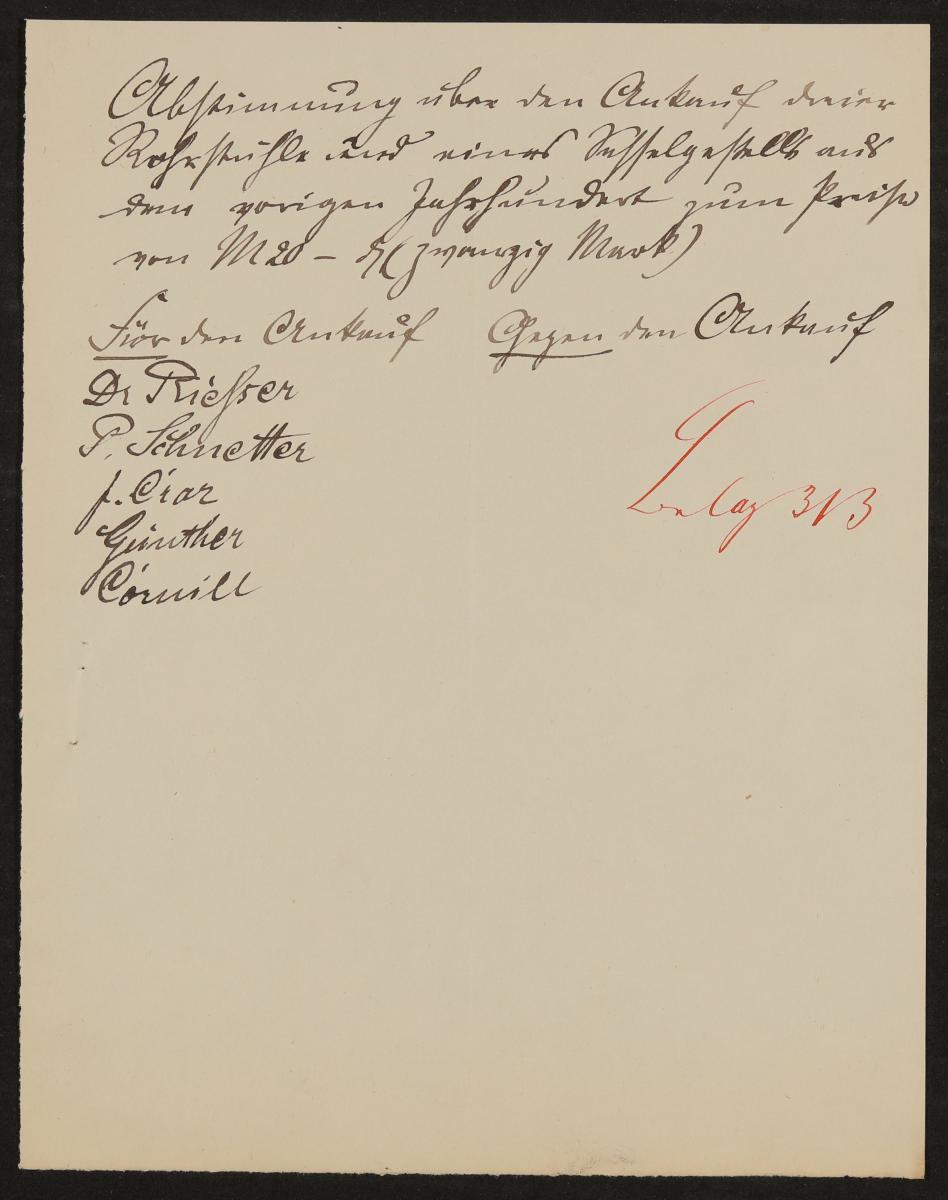 Abstimmung über den Ankauf dreier
Rohrstühle und eines Sesselgestells aus
dem vorigen Jahrhundert zum Preise
von M 20 – ₰ (zwanzig Mark)
Für den Ankauf Gegen den Ankauf
Dr Riesser
P. Schnetter
Günther
Cornill
Beleg 313